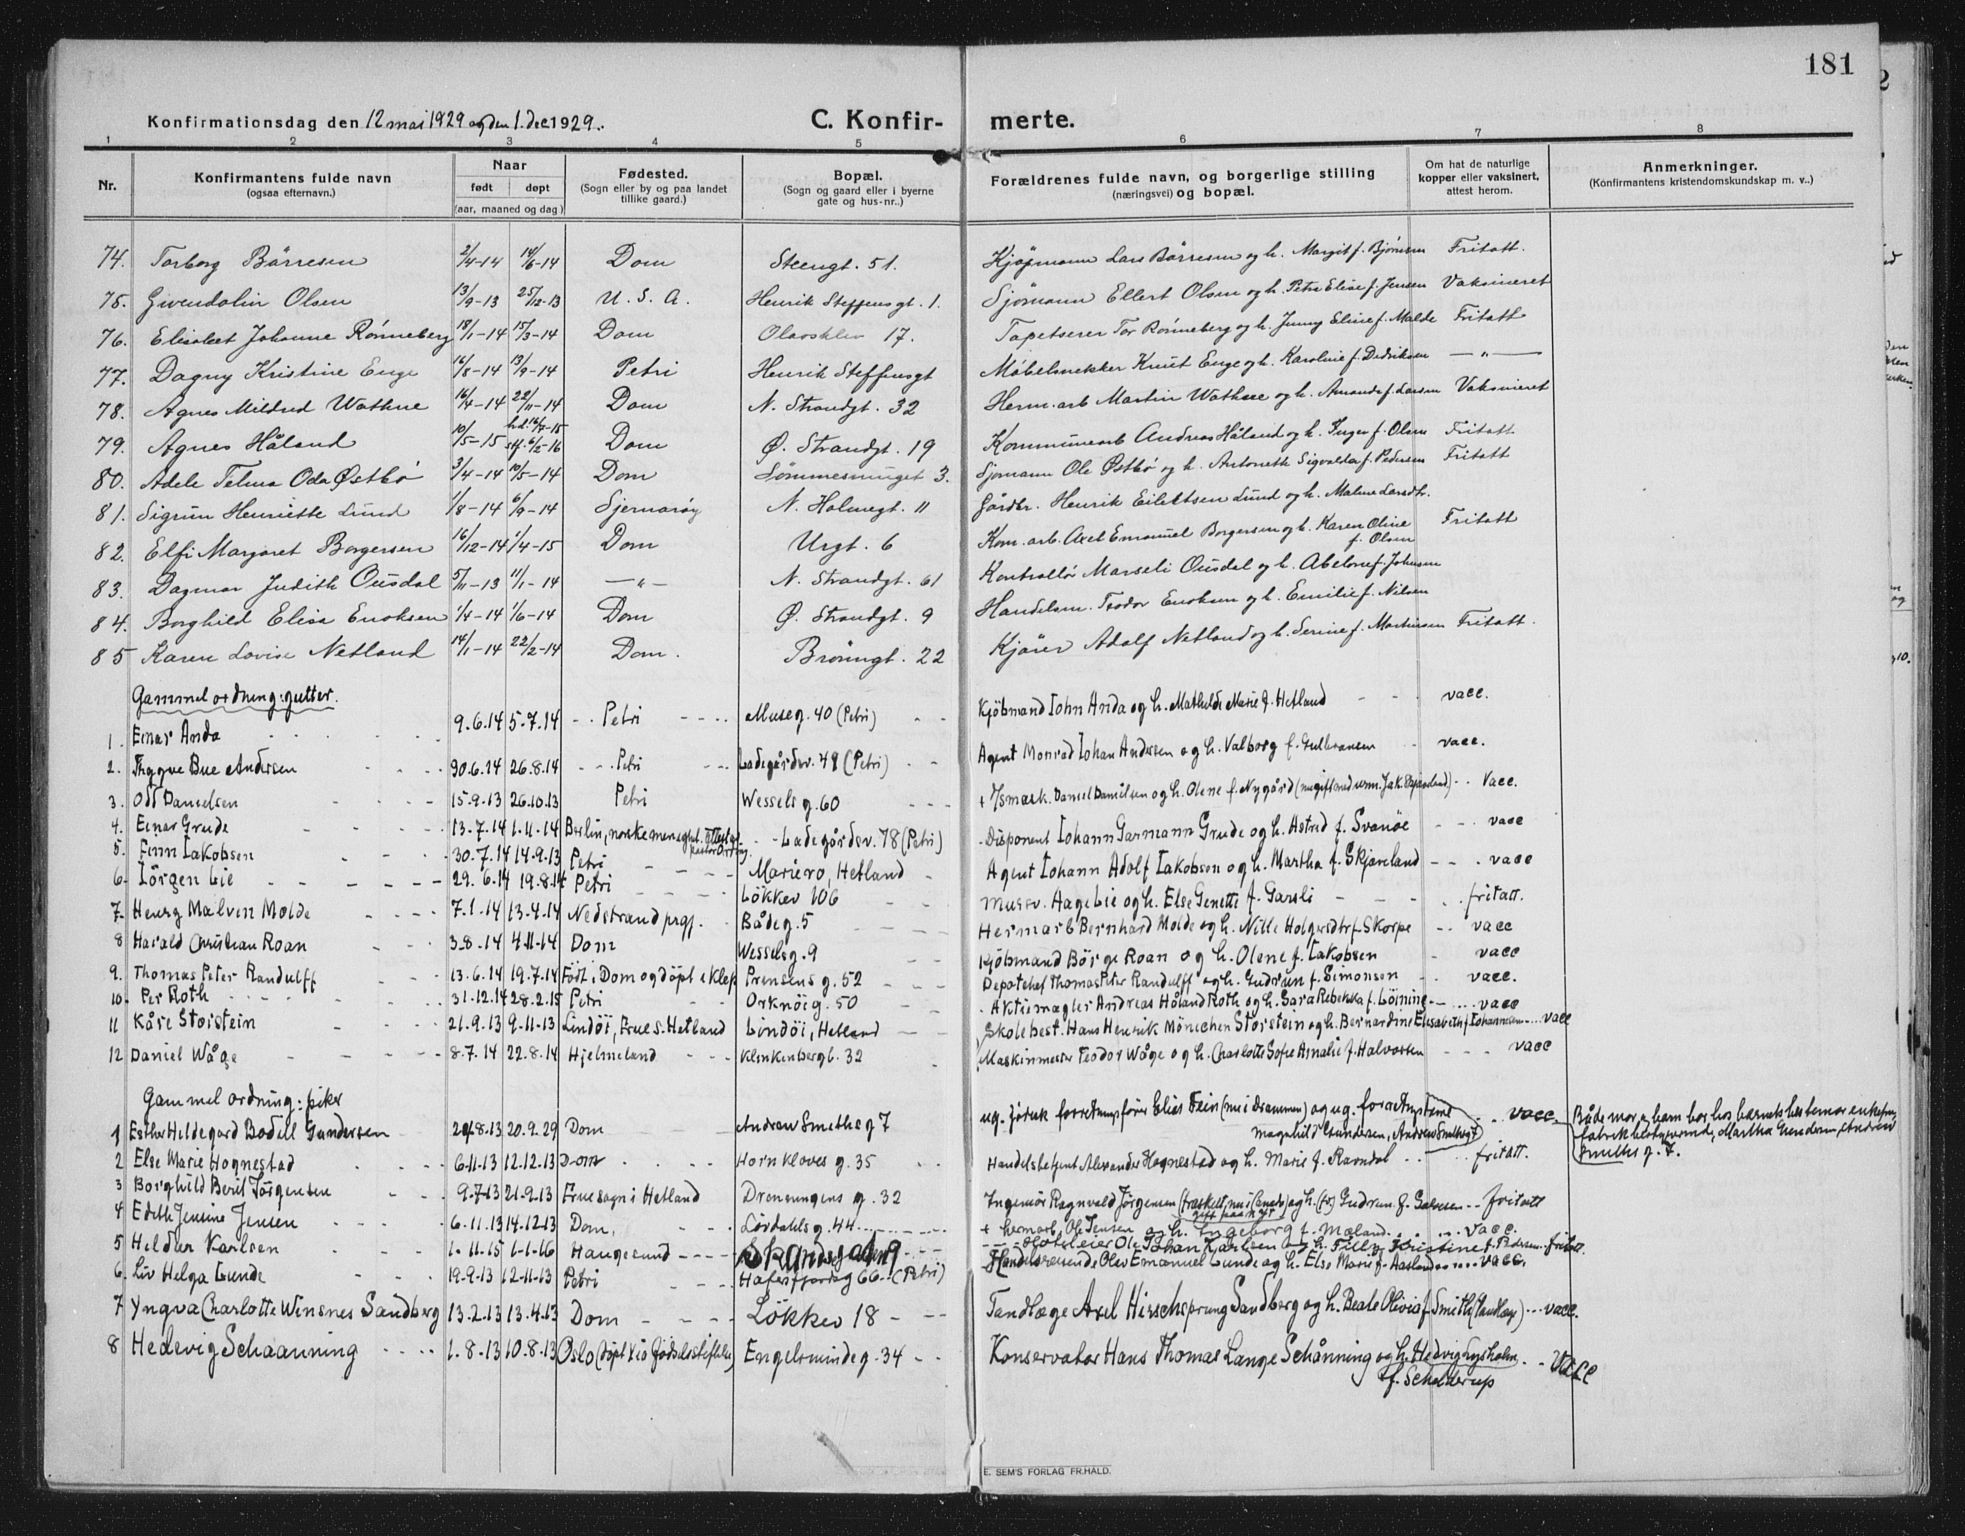 181
Konfirmationsdag den 12 mai 1929 og den 1. dec 1929. C. Konfir- merte.
1 2 3 4 5 6 7 8
Nr. Konfirmantens fulde navn (ogsaa efternavn.) Naar født døpt (aar, maaned og dag) Fødested. (Sogn eller by og paa landet tillike gaard.) Bopæl. (Sogn og gaard eller i byerne gate og hus-nr..) Forældrenes fulde navn, og borgerlige stilling (næringsvei) og bopæl. Om hat de naturlige kopper eller vaksinert, attest herom. Anmerkninger. (Konfirmantens kristendomskundskap m. v..)
74. Torborg Børresen 2/4-14 14/6-14 Dom Steengt. 51. Kjøpmann Lars Børresen og h. Margit f. Bjørnsen Fritatt.
75. Gwendolin Olsen 13/9-13 25/12-13 U.S.A. Henrik Steffensgt. 1. Sjømann Ellert Olsen og h. Petra Elise f. Jensen Vaksineret
76. Elisabet Johanne Rønneberg 18/1-14 15/3-14 Dom Olavsklev 17. Tapetserer Tor Rønneberg og h. Jenny Eline f. Malde Fritatt
77. Dagny Kristine Enge 16/8-14 13/9-14 Petri Henrik Steffensgt Møbelsnekker Knut Enge og h. Karoline f. Dedriksen —"—
78. Agnes Mildred Wathne 16/4-14 22/11-14 Dom N. Strandgt. 32 Herm. arb Martin Wathne og h. Amanda f. Larsen Vaksineret
79. Agnes Håland 10/5-15 hd. 14/7-15 stf. 6/2-16 Dom Ø. Strandgt. 19 Kommunearb Andreas Håland og h. Inger f. Olsen Fritatt
80. Adele Telma Oda Østbø 3/4-14 10/5-14 Dom Sømmesmuget 3. Sjømann Ole Østbø og h. Antonette Sigvalda f. Pedersen Fritatt
81. Sigrun Henriette Lund 1/8-14 6/9-14 Sjernarøy N. Holmegt. 11 Gårdbr. Henrik Eilertsen Lund og h. Malene Larsdtr.
82. Elfi Margaret Borgersen 16/12-14 1/4-15 Dom Urgt. 6 Kom. arb. Axel Emanuel Borgersen og h. Karen Oline f. Olsen Fritatt
83. Dagmar Judith Ousdal 5/11-13 11/1-14 —"— N. Strandgt. 61 Kontrollør Marseli Ousdal og h. Abelone f. Johnsen
84. Borghild Elisa Enoksen 1/4-14 1/6-14 Dom Ø. Strandgt. 9 Handelsm. Teodor Enoksen og h. Emilie f. Nilsen
85 Karen Lovise Netland 14/1-14 22/2-14 Dom. Brønngt. 22 Kjører Adolf Netland og h. Serine f. Martinsen Fritatt.
Gammel ordning: gutter.
1. Einar Anda 9.6.14 5.7.14 Petri Museg. 40 (Petri) Kjøbmand John Anda og h. Mathilde Marie f. Hetland vacc.
2. Thygve Bue Andersen 30.6.14 26.8.14 Petri Ladegårdsv. 49 (Petri) Agent Monrad Johan Andersen og h. Valborg f. Gulbransen vacc.
3. Odd Danielsen 15.9.13 26.10.13 Petri Wesselsg. 60 + Ismask. Daniel Danielsen og h. Olene f. Nygård Vacc.
4. Einar Grude 13.7.14 1.11.14 Berlin, norske menegh. Ladegårdsv. 78 (Petri) Disponent Johann Garmann Grude og h. Astrid f. Svanøe vacc
5. Finn Jakobsen 30.7.14 14.9.13 Petri Mariero, Hetland Agent Johann Adolf Jakobsen og h. Martha f. Skjæveland vacc
6. Jörgen Lie 29.6.14 19.8.14 Petri Løkkev 106 Murer. Aage Lie og h. Else Genette f. Garsli fritatt.
7. Henry Malvin Molde 7.1.14 13.4.14 Nedstrand prgj. Bådeg. 5 Hermarb Bernhard Molde og h. Nille Holgersdtr f. Skorpe vacc
8 Harald Christian Roan 3.8.14 4.11.14 Dom Wesselsg. 9 Kjøbmand Börge Roan og h. Olene f. Jakobsen vacc
9. Thomas Peter Randulff 13.6.14 19.7.14 Født i Dom og døpt i Klep Prinsens g. 52 Depotchef Thomas Peter Randulff og h. Gudrun f. Simonsen vacc.
10. Per Roth 31.12.14 28.2.15 Petri Orknöig. 50 Aktiemægler Andreas Håland Roth og h. Sara Rebekka f. Löining vacc
11 Kåre Storstein 21.9.13 9.11.13 Lindöi, Frue s. Hetland Lindöi, Hetland Skolebest. Hans Henrik Mönichen Storstein og h. Bernardine Elisabeth f. Johannesen vacc
12 Daniel Wåge 8.7.14 22.8.14 Hjelmeland Klinkenbergb. 32 Maskinmester Teodor Wåge og h. Charlotte Sofie Amalie f. Halvorsen vacc
Gammel ordning: piker
1 Esther Hildegard Bodill Gundersen 24.8.13 20.9.29 Dom Andrew Smiths g 7 ug. forretningsfører Elias Fein (nu i Drammen) og ug. Magnhild Gundersen, Andrew Smithsgt 7 vacc. Både mor og barn bor hos barnets bestemor enkefru Martha Gundersen, Andrew Smiths g. 7.
2 Else Marie Hognestad 6.11.13 12.12.13 Dom Hornkloves g. 35 Handelsbetjent Alexander Hognestad og h. Marie f. Ravndal fritatt.
3 Borghild Berit Jörgensen 9.7.13 21.9.13 Fruesogn i Hetland Dronningens g. 32 Ingeniör Ragnvald Jörgensen og h. Gudrun f. fritatt
4 Edith Jensine Jensen 6.11.13 14.12.13 Dom. Lørdahlsg. 44 + hermarb. Ole Jensen og h. Ingeborg f. Mæland vacc.
5 Hildur Karlsen 1.11.15 1.1.16 Haugesund Skandsegaten 9 Hoteleier Ole Johan Karlsen og h. Tilly Kristine f. Pedersen. fritatt.
6. Liv Helga Lunde 19.9.13 12.11.13 Petri Hafrsfjordsg 66 (Petri) Handelsreisende Olav Emanuel Lunde og h. Else Marie f. Aasland vacc.
7 Yngva Charlotte Winsnes Sandberg 13.2.13 13.4.13 Dom Løkkev 18 Tandlæge Axel Hirschsprung Sandberg og h. Beate Olivia f. Smith (Tandlæge) vacc.
8 Hedevig Schaanning 1.8.13 10.8.13 Oslo (døpt i Fødselsstiftelse) Engelsmindeg. 34 Konservator Hans Thomas Lange Schånning og h. Hedvig f. Schelderup Vacc
E. SEM'S FORLAG FR.HALD.